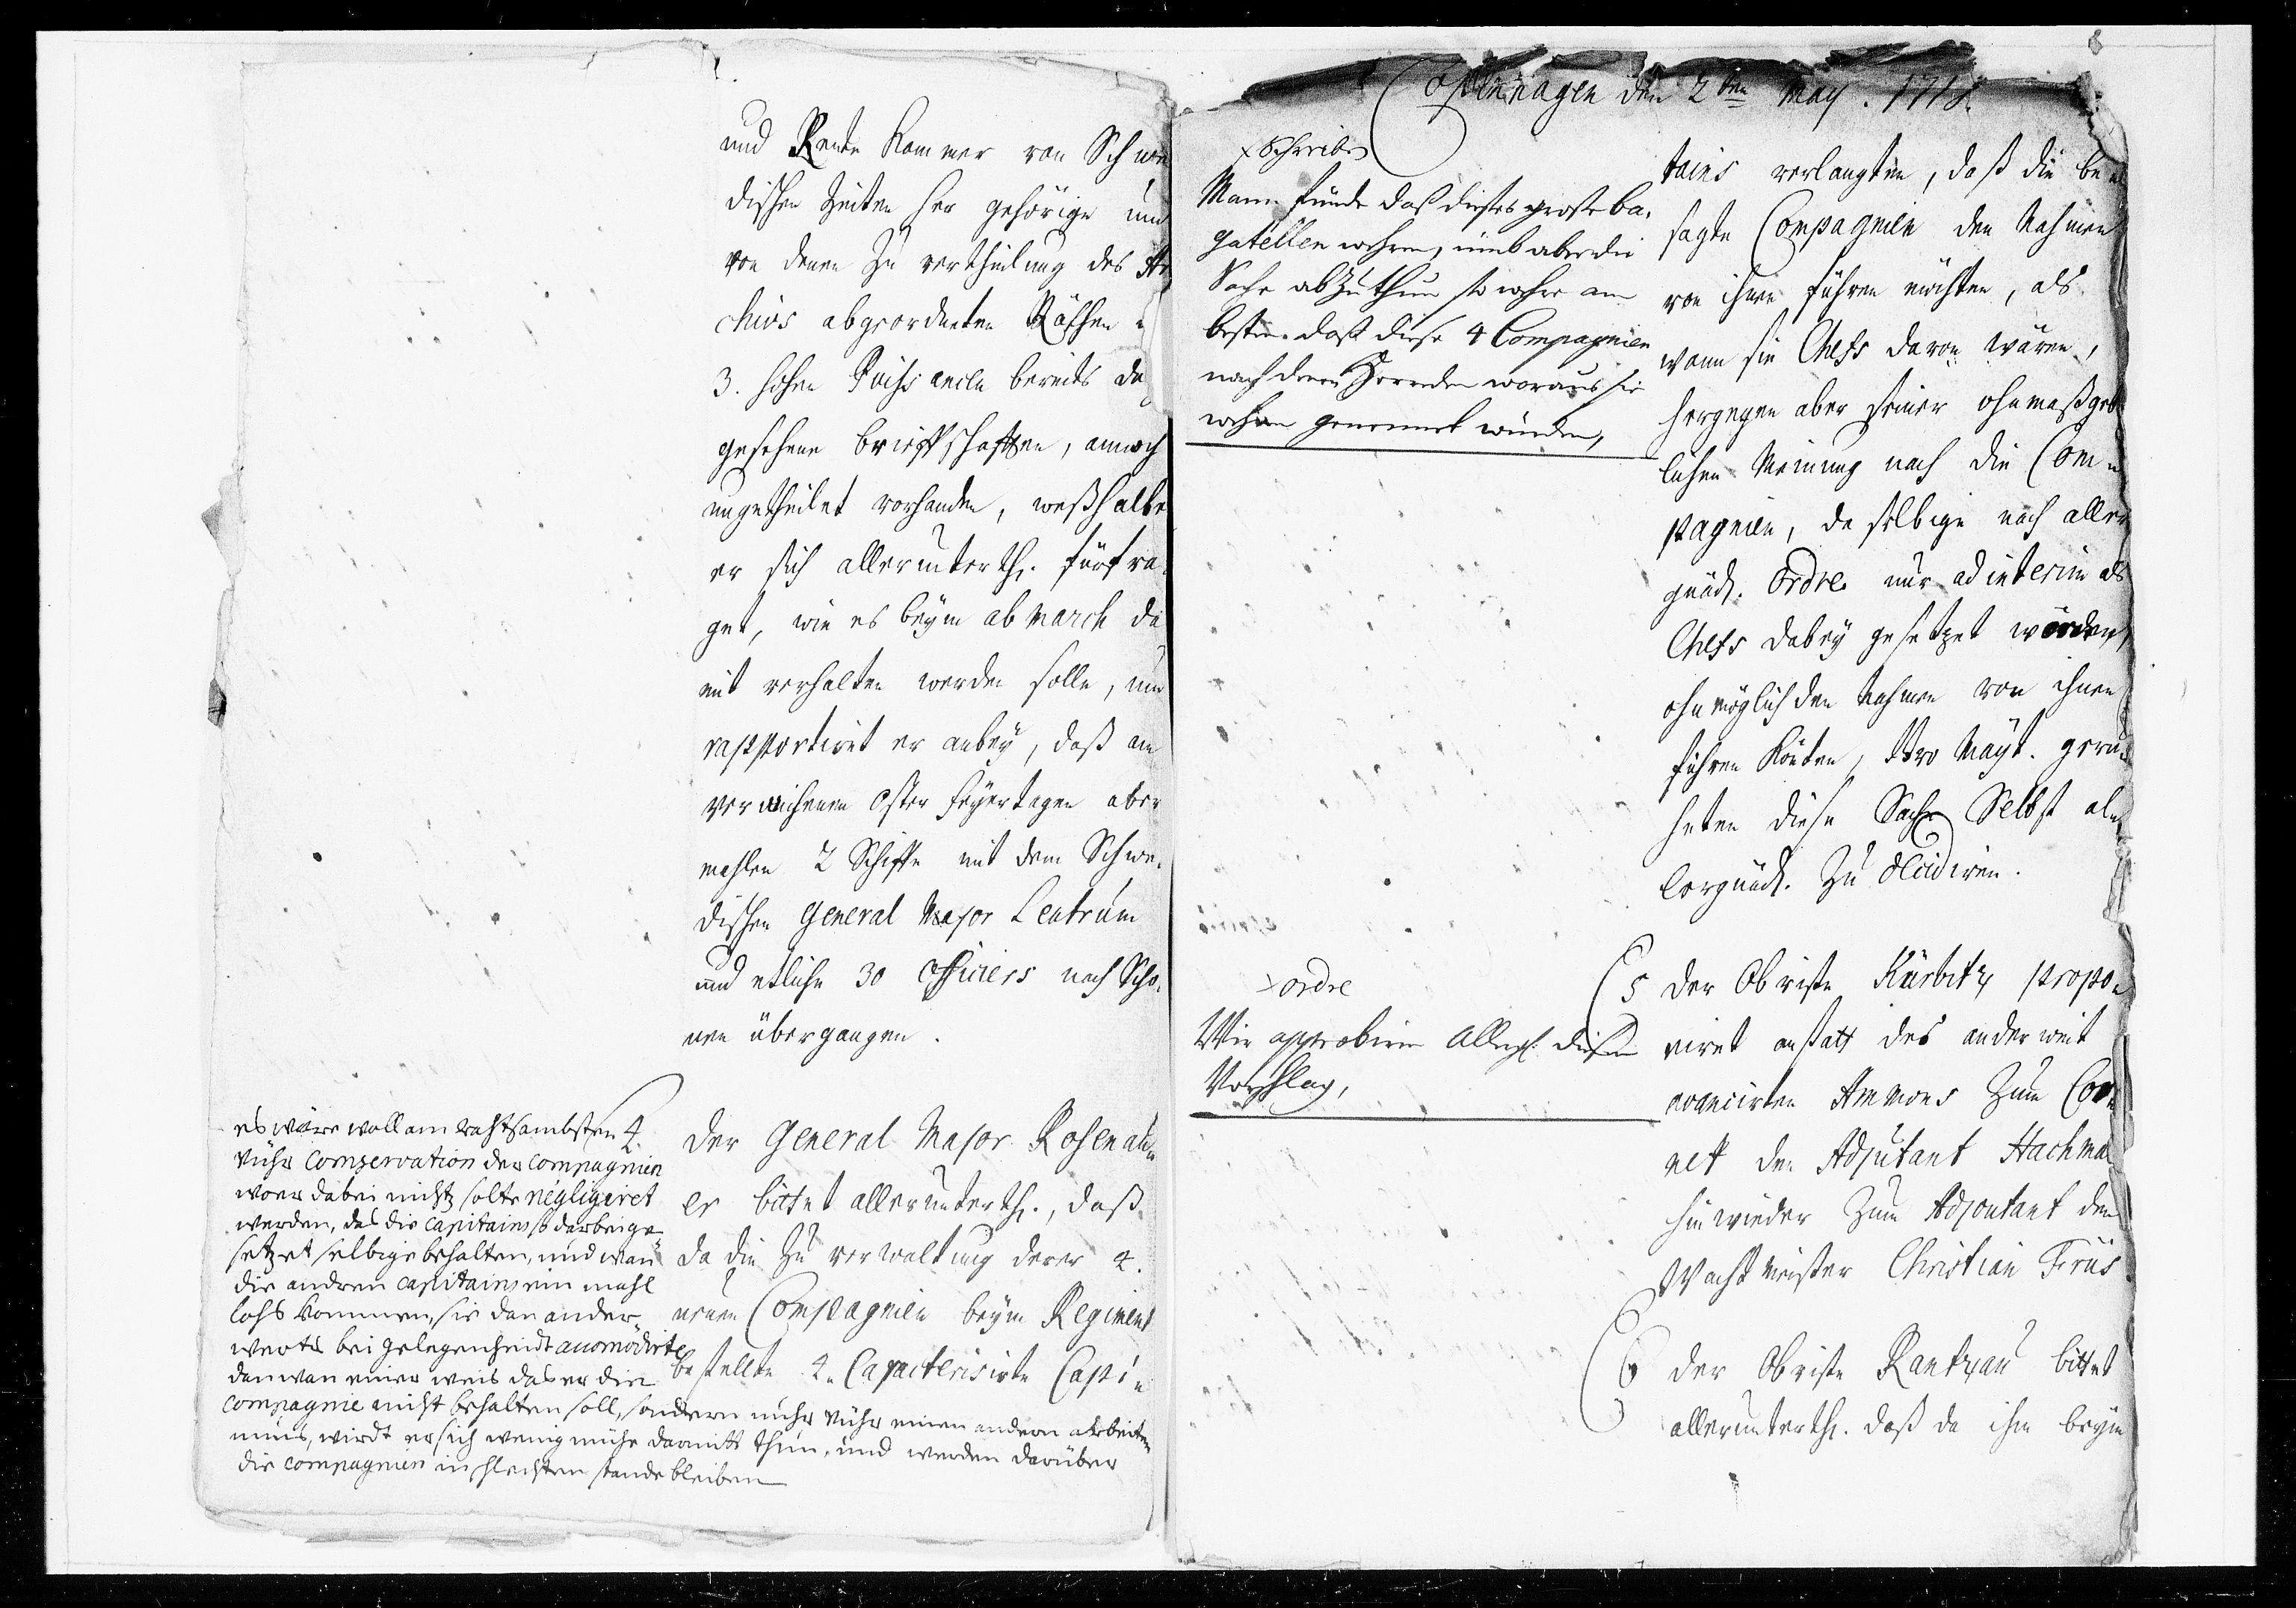 und Rente Kammer von Schwe
dischen Zeiten her gehörige und
von denen zu vertheilung des Ar
chivs abgeordneten Räthen
3. hohen Puissancen bereits da
gesehene brieffschafften, annoch
ungetheilet vorhanden, weßhalbe
er sich allerunterth. fürfra-
get, wie es beym abmarch da
mit verhalten werden solle, und
rapportiret er anbey, daß am
verwichenen Oster feyertagen aber
mahlen 2 Schiffe mit dem Schwe-
dischen General Major Leutrum
und etliche 30 Officiers nach Scho-
nen übergangen.
es wäre woll am rahtsambsten
vühr conservation der compagnien
woer dabei nichtz solte négligeret
werden, das die capitains so darbei ge-
setzet selbige behalten, und wan
die andren capitains ein mahl
lohs kommen, sie dan ander-
werts bei gelegenheidt accomodirte
dan wan einer weis das er die
compagnie nicht behalten soll, sondern nuhr vühr einen andern arbeiten
mus, wirdt er sich wenig mühe darmitt thun, und werden darüber
die compagnien in schlechten stande bleiben
4.
Der General Major Rosenan
er bittet allerunterth., daß
da die zu verwaltung derer 4.
neuen Compagnien beym Regiment
bestellte 4. Caracterisirte Capi-
Copenhagen den 2ten May. 1718.
Schreiben
Mann finde daß dieses große ba-
gatellen wehren, umb aber die
Sache abzuthun so wehre am
besten daß diese 4 Compagnien
nach denen Herreden woraus sie
wehren genennet würden,
tains verlangten, daß die be-
sagte Compagnien den Nahmen
von ihnen führen möchten, als
wann sie Chefs davon wären,
hergegen aber seiner ohnmaßgeb
lichen Meinung nach die Com-
pagnien, da selbige nach aller
gnäd. Ordre nur ad interim als
Chefs dabey gesetzet worden,
ohnmöglich den Nahmen von ihnen
führen könten, Ihro Mayt. geru-
heten diese Sache Selbst al-
lergnäd. zu decidiren.
ordre
Wir approbiren Allergn. diesen
Vorschlag,
5 Der Obriste Kürbitz propo-
niret anstatt des anderweit
avancirten Ammons zum Cor-
net den Adjutant Hachma
hinwieder zum Adjoutant den
Wachtmeister Christian Frus
6 Der Obriste Rantzau bittet
allerunterth. daß da ihm beym